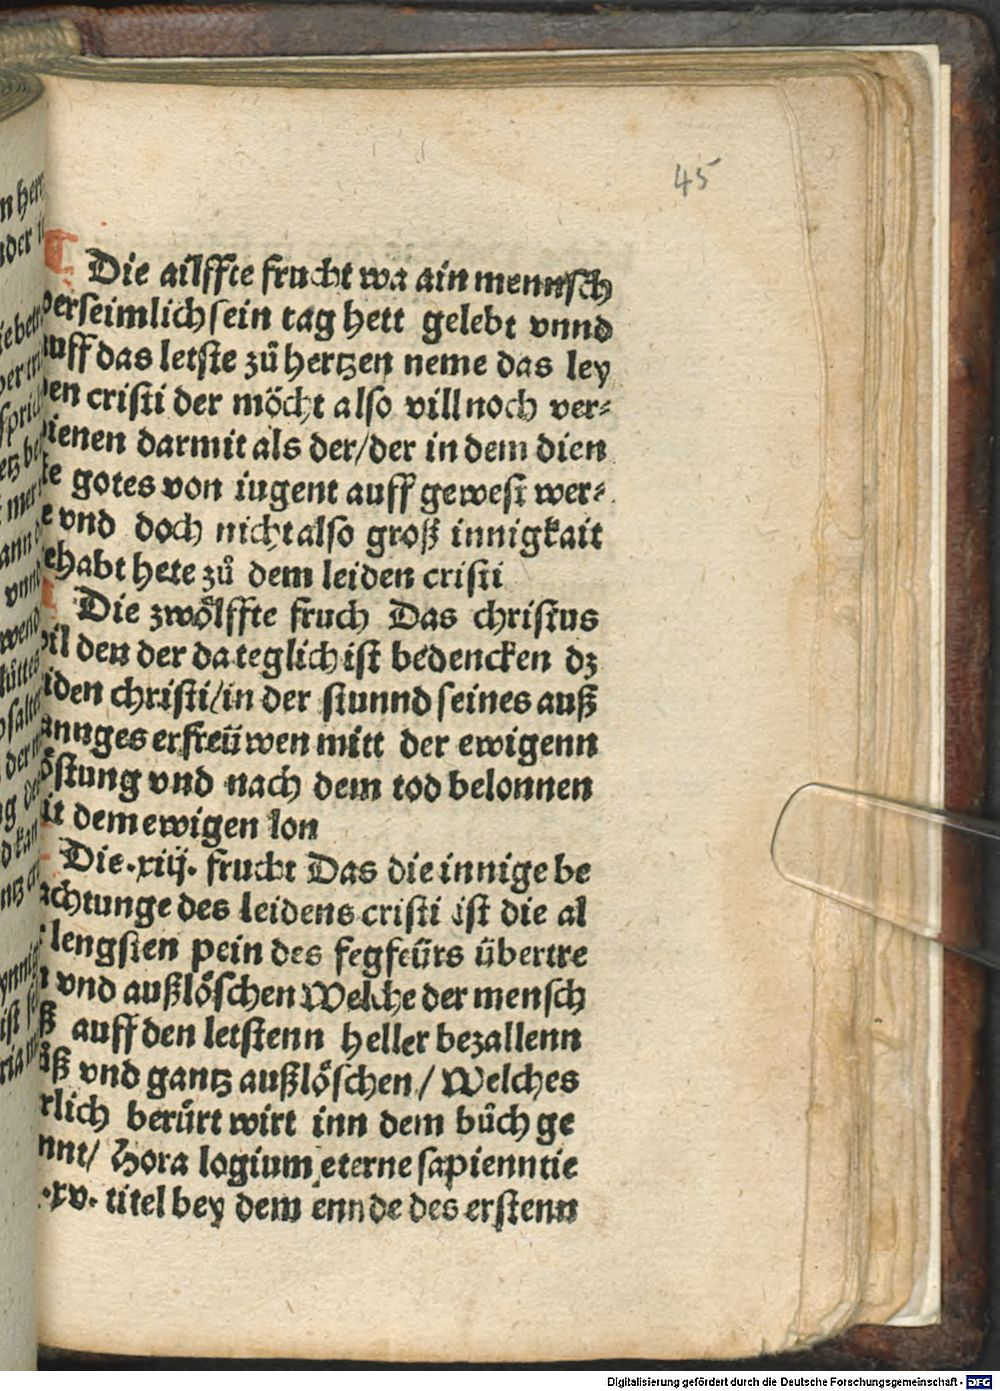 45
Die ailffte frucht wa ain mennsch
verseimlich sein tag hett gelebt vnnd
auff das letste zů hertzen neme das ley
den cristi der möcht also vill noch ver⸗
dienen darmit als der/der in dem dien
te gotes von iugent auff gewest wer⸗
e vnd doch nicht also groß innigkait
ehabt hete zů dem leiden cristi
Die zwölffte fruch Das christus
vil den der da teglich ist bedencken dz
iden christi/in der stunnd seines auß
annges erfreüwen mitt der ewigenn
östung vnd nach dem tod belonnen
it dem ewigen lon
Die .xiij. frucht Das die innige be
achtunge des leidens cristi ist die al
lengsten pein des fegfeürs übertre
n vnd außlöschen Welche der mensch
ß auff den letstenn heller bezallenn
ůß vnd gantz außlöschen/ Welches
rlich berürt wirt inn dem bůch ge
nnt/ Hora logium eterne sapienntie
.xv. titel bey dem ennde des erstenn
Digitalisierung gefördert durch die Deutsche Forschungsgemeinschaft - DFG